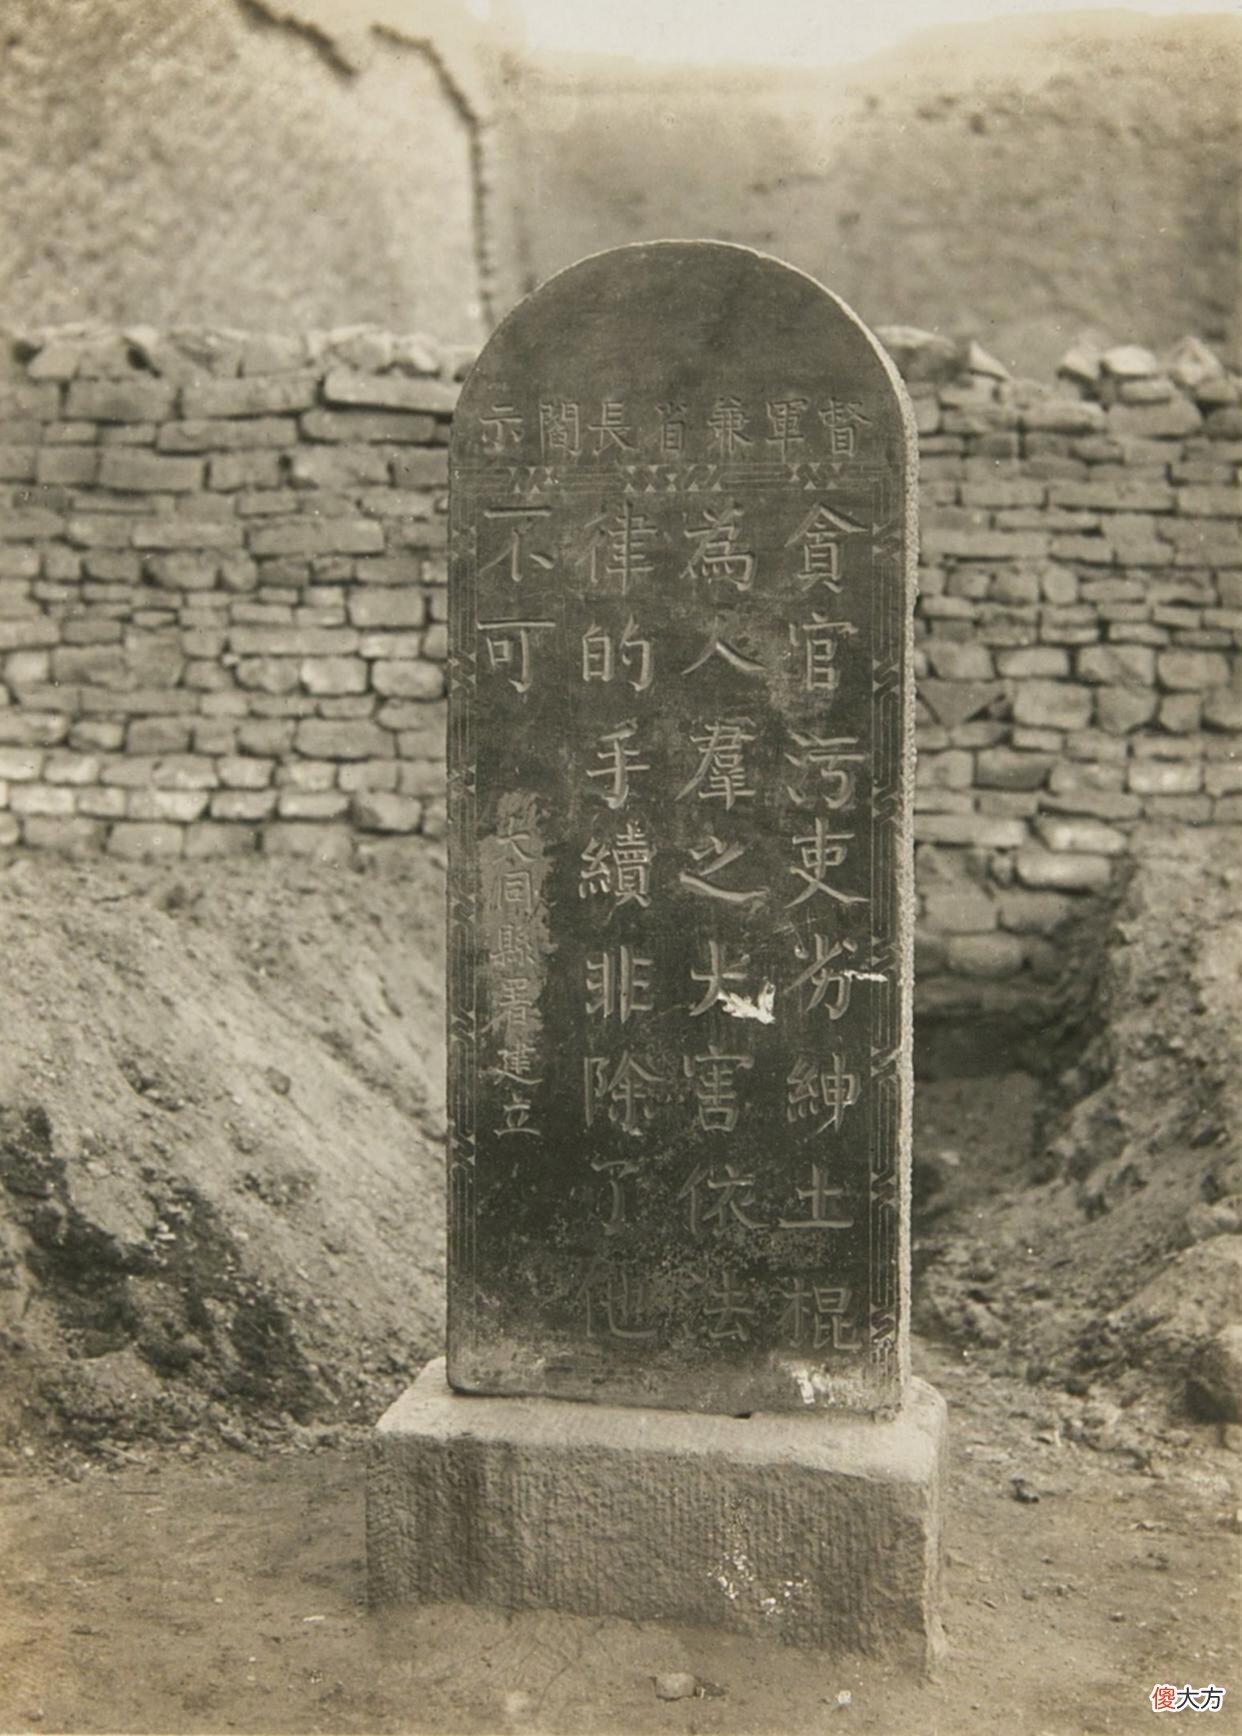 督軍兼省長閻示
貪官污吏劣紳土棍
為人羣之大害依法
律的手續非除了他
不可
大同縣署建立
傻大方